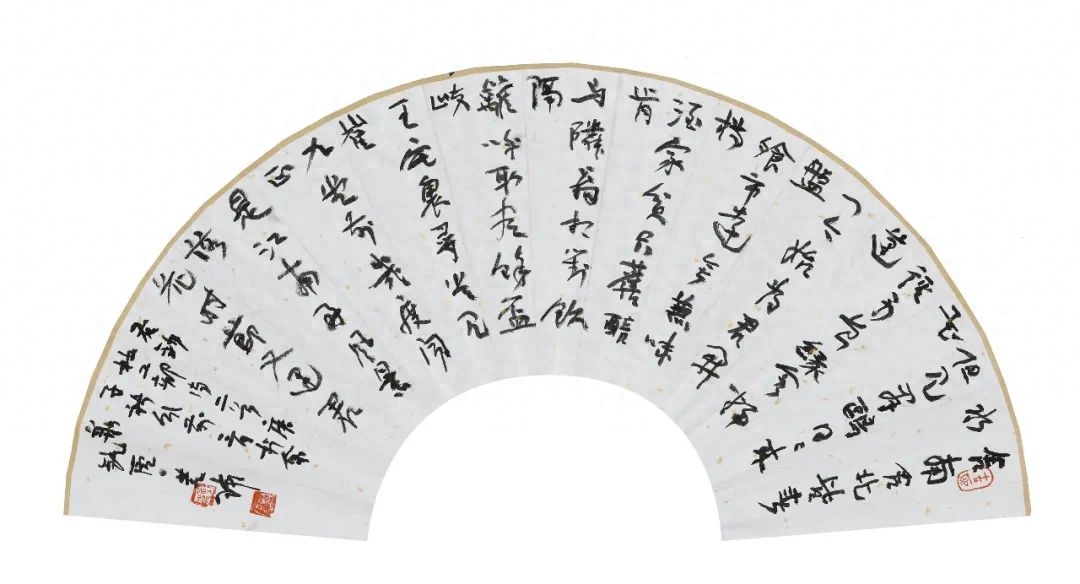 舍南舍北皆春
水但见群鸥日日来
花径不曾缘客掃
蓬
门今始为君開
盤
飧市遠無兼味
樽
酒家貧只舊醅
肯
与隣翁相對飲
隔
籬呼取尽餘盃
岐
王宅裏尋常見
崔
九堂前幾度闻
正
是江南好风景
落
花时節又逢君
杜工部诗二首